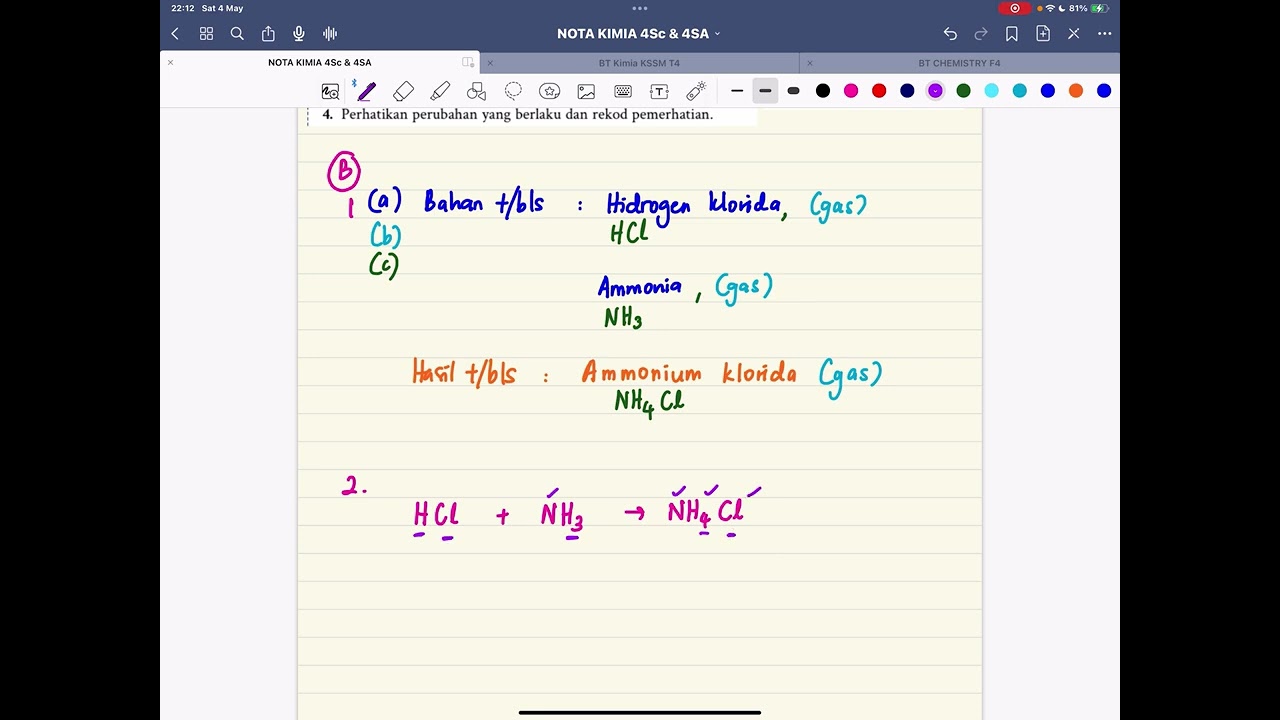 22:12 Sat 4 May
81%
NOTA KIMIA 4Sc & 4SA
NOTA KIMIA 4Sc & 4SA
BT Kimia KSSM T4
BT CHEMISTRY F4
4. Perhatikan perubahan yang berlaku dan rekod pemerhatian.
B
1 (a) Bahan t/bls : Hidrogen klorida, (gas)
(b) HCl
(c)
Ammonia, (gas)
NH₃
Hasil t/bls : Ammonium klorida (gas)
NH₄Cl
2.
HCl + NH₃ → NH₄Cl